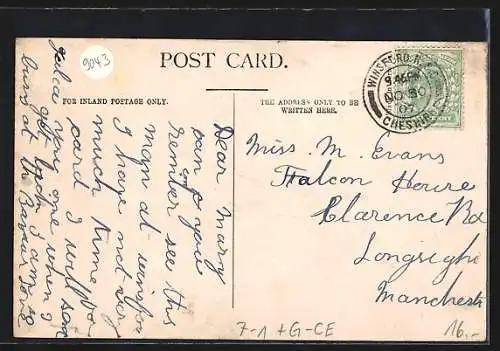 9043
POST CARD.
FOR INLAND POSTAGE ONLY.
THE ADDRESS ONLY TO BE
WRITTEN HERE.
WINSFORD.
NO 30
07
CHESHIRE
Dear Mary
can you
rember see this
man at winsfor
I have not very
much time for
card I will sen
one when I
get I am
at the
Miss. M. Evans
Falcon House
Clarence Rd
Longsight
Manchest
7-1 +G-CE
16.-